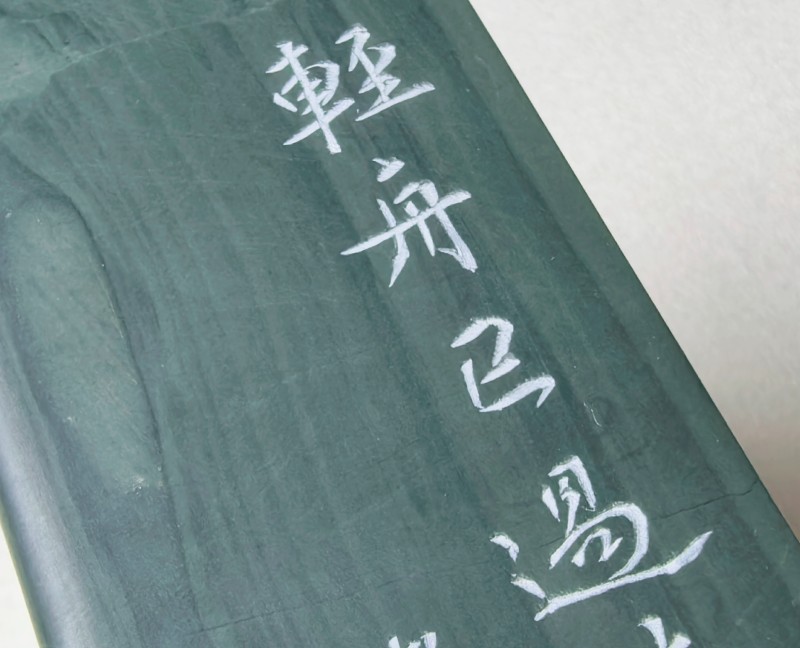 輕舟已過